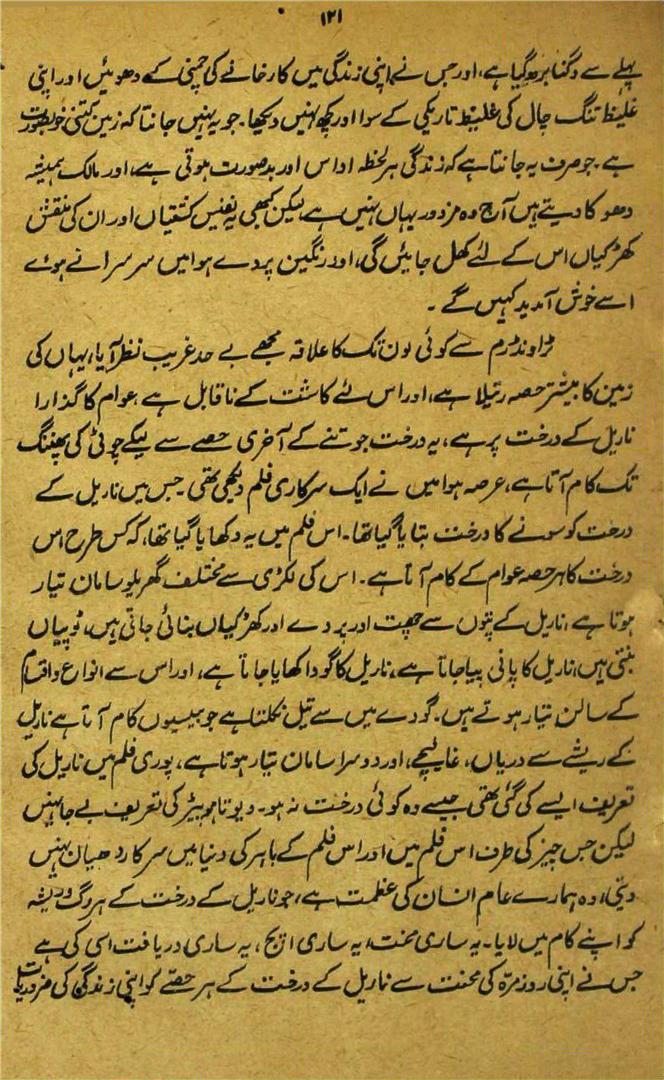 ۱۲۱
پہلے سے دگنا بڑھ گیا ہے، اور جس نے اپنی زندگی میں کارخانے کی چمنی کے دھوئیں اور اپنی
غلیظ تنگ چال کی غلیظ تاریکی کے سوا اور کچھ نہیں دیکھا۔ جو یہ نہیں جانتا کہ زمین کتنی خوبصورت
ہے۔ جو صرف یہ جانتا ہے کہ زندگی ہر لحظہ اداس اور بدصورت ہوتی ہے، اور مالک ہمیشہ
دھوکا دیتے ہیں آج وہ مزدور یہاں نہیں ہے لیکن کبھی یہ نفیس کشتیاں اور ان کی منقش
کھڑکیاں اس کے لئے کھل جائیں گی، اور رنگین پردے ہوا میں سرسراتے ہوئے
اسے خوش آمدید کہیں گے۔
ٹراونڈرم سے کوئی لون تک کا علاقہ مجھے بے حد غریب نظر آیا، یہاں کی
زمین کا بیشتر حصہ رتیلا ہے، اور اس لئے کاشت کے ناقابل ہے عوام کا گذارا
ناریل کے درخت پر ہے، یہ درخت جو تنے کے آخری حصے سے لیکے چوٹی کی پھننگ
تک کام آتا ہے، عرصہ ہوا میں نے ایک سرکاری فلم دیکھی تھی۔ جس میں ناریل کے
درخت کو سونے کا درخت بتایا گیا تھا۔ اس فلم میں یہ دکھایا گیا تھا، کہ کس طرح اس
درخت کا ہر حصہ عوام کے کام آتا ہے۔ اس کی لکڑی سے مختلف گھریلو سامان تیار
ہوتا ہے، ناریل کے پتوں سے چھت اور پردے اور کھڑکیاں بنائی جاتی ہیں، ٹوپیاں
بنتی ہیں، ناریل کا پانی پیا جاتا ہے، ناریل کا گودا کھایا جاتا ہے، اور اس سے انواع و اقسام
کے سالن تیار ہوتے ہیں۔ گودے میں سے تیل نکلتا ہے جو بیسیوں کام آتا ہے ناریل
کے ریشے سے دریاں، غالیچے، اور دوسرا سامان تیار ہوتا ہے، پوری فلم میں ناریل کی
تعریف ایسے کی گئی تھی جیسے وہ کوئی درخت نہ ہو۔ دیوتا ہو پیڑ کی تعریف بے جا نہیں
لیکن جس چیز کی طرف اس فلم میں اور اس فلم کے باہر کی دنیا میں سرکار دھیان نہیں
دیتی، وہ ہمارے عام انسان کی عظمت ہے، جو ناریل کے درخت کے ہر رگ و ریشہ
کو اپنے کام میں لایا۔ یہ ساری محنت، یہ ساری اپج، یہ ساری دریافت اسی کی ہے
جس نے اپنی روزمرّہ کی محنت سے ناریل کے درخت کے ہر حصّے کو اپنی زندگی کی ضروریات